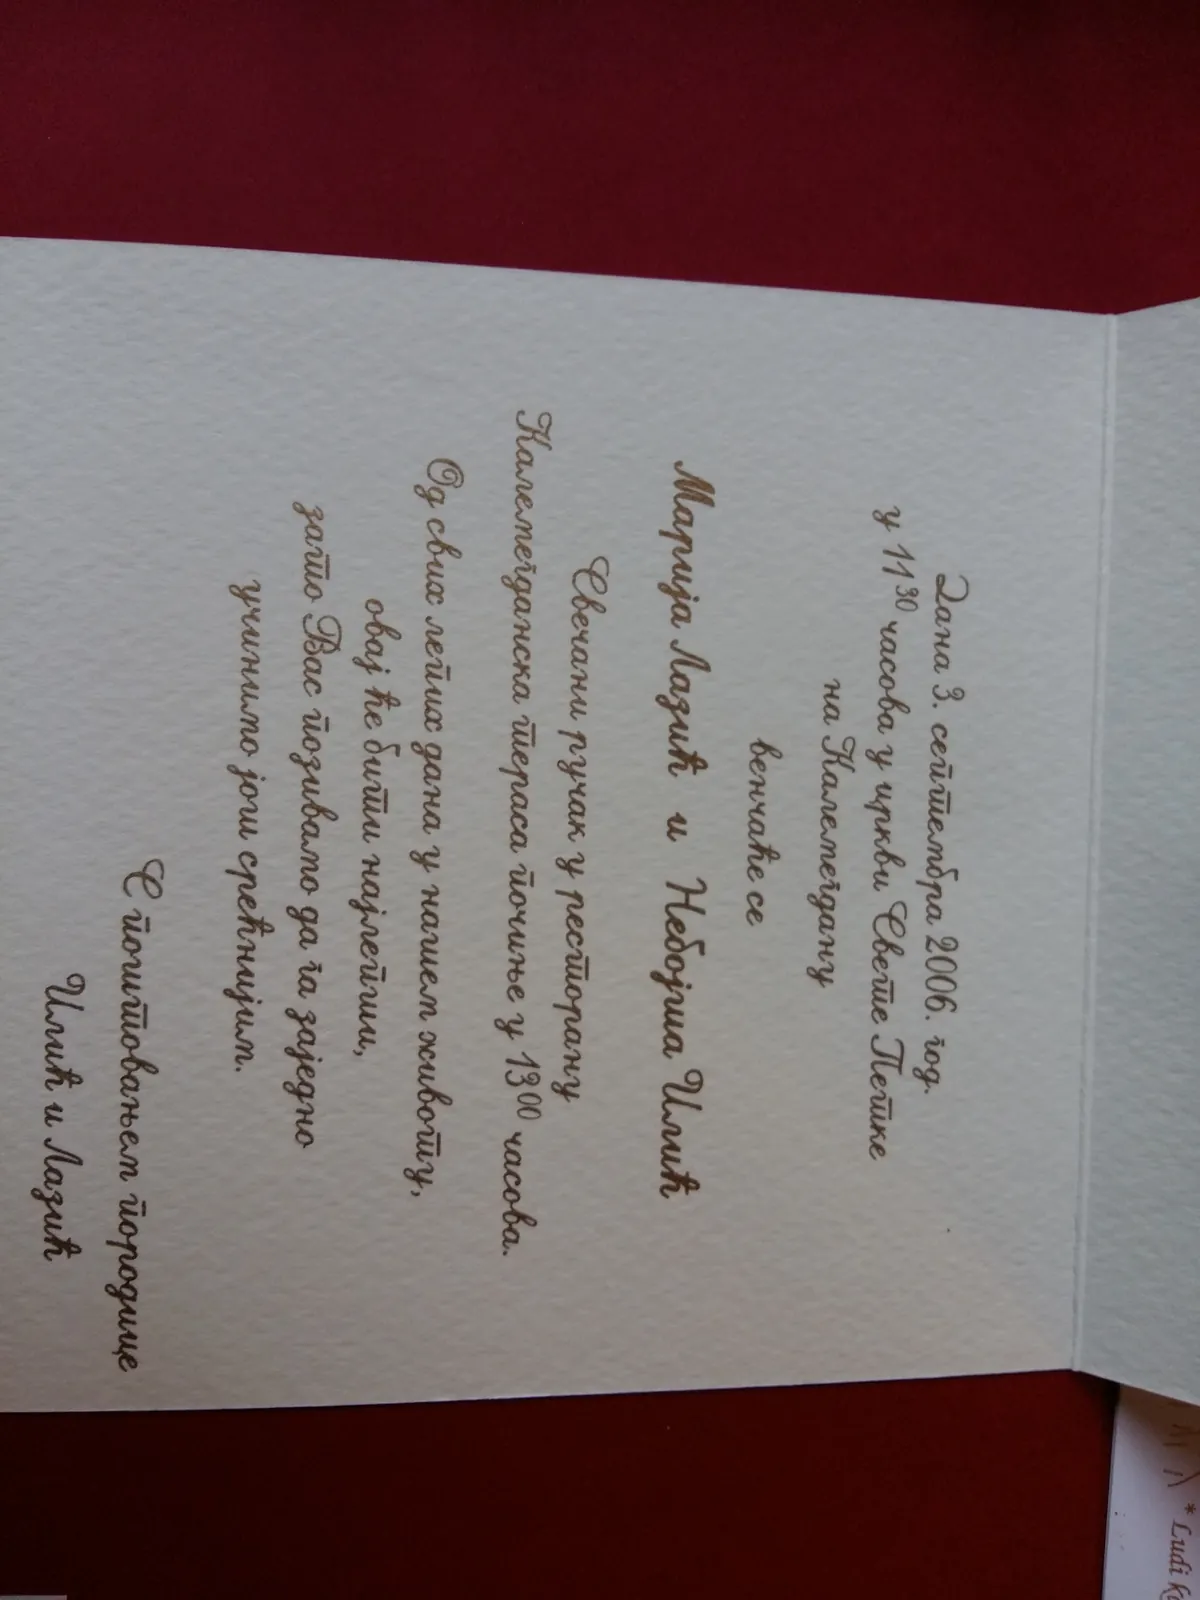 Дана 3. септембра 2006. год.
у 11³⁰ часова у цркви Свете Петке
на Калемегдану
венчаће се
Марија Лазић и Небојша Илић
Свечани ручак у ресторану
Калемегданска тераса почиње у 13⁰⁰ часова.
Од свих лепих дана у нашем животу,
овај ће бити најлепши,
зато Вас позивамо да га заједно
учинимо још срећнијим.
С поштовањем породице
Илић и Лазић
* Ludi